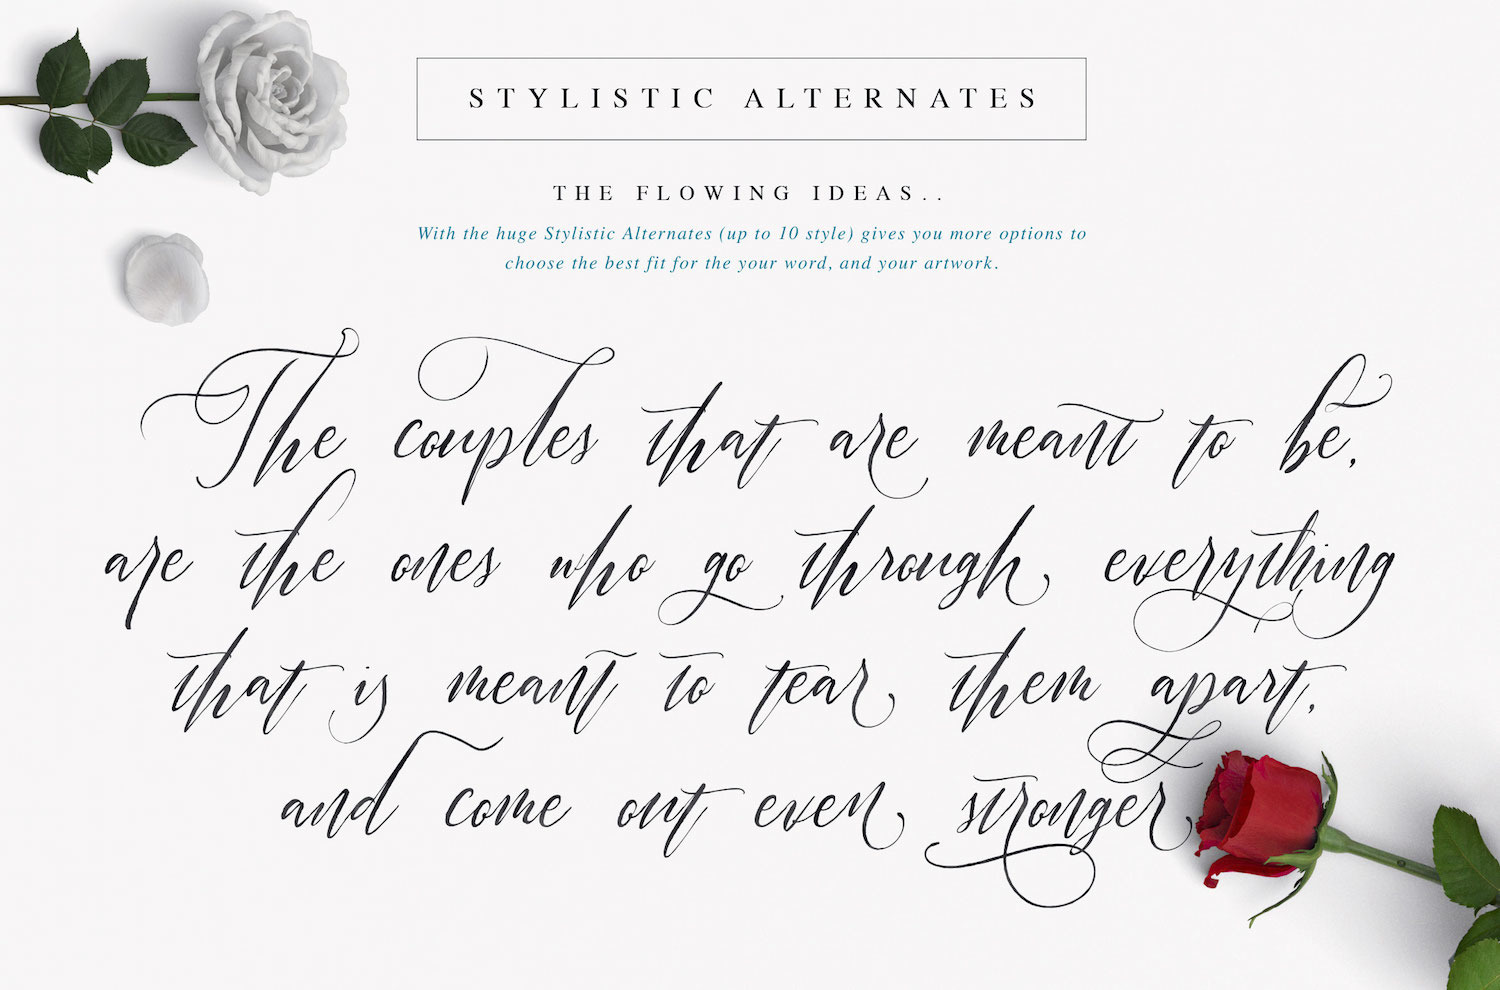 STYLISTIC ALTERNATES
THE FLOWING IDEAS..
With the huge Stylistic Alternates (up to 10 style) gives you more options to
choose the best fit for the your word, and your artwork.
The couples that are meant to be,
are the ones who go through everything
that is meant to tear them apart,
and come out even stronger